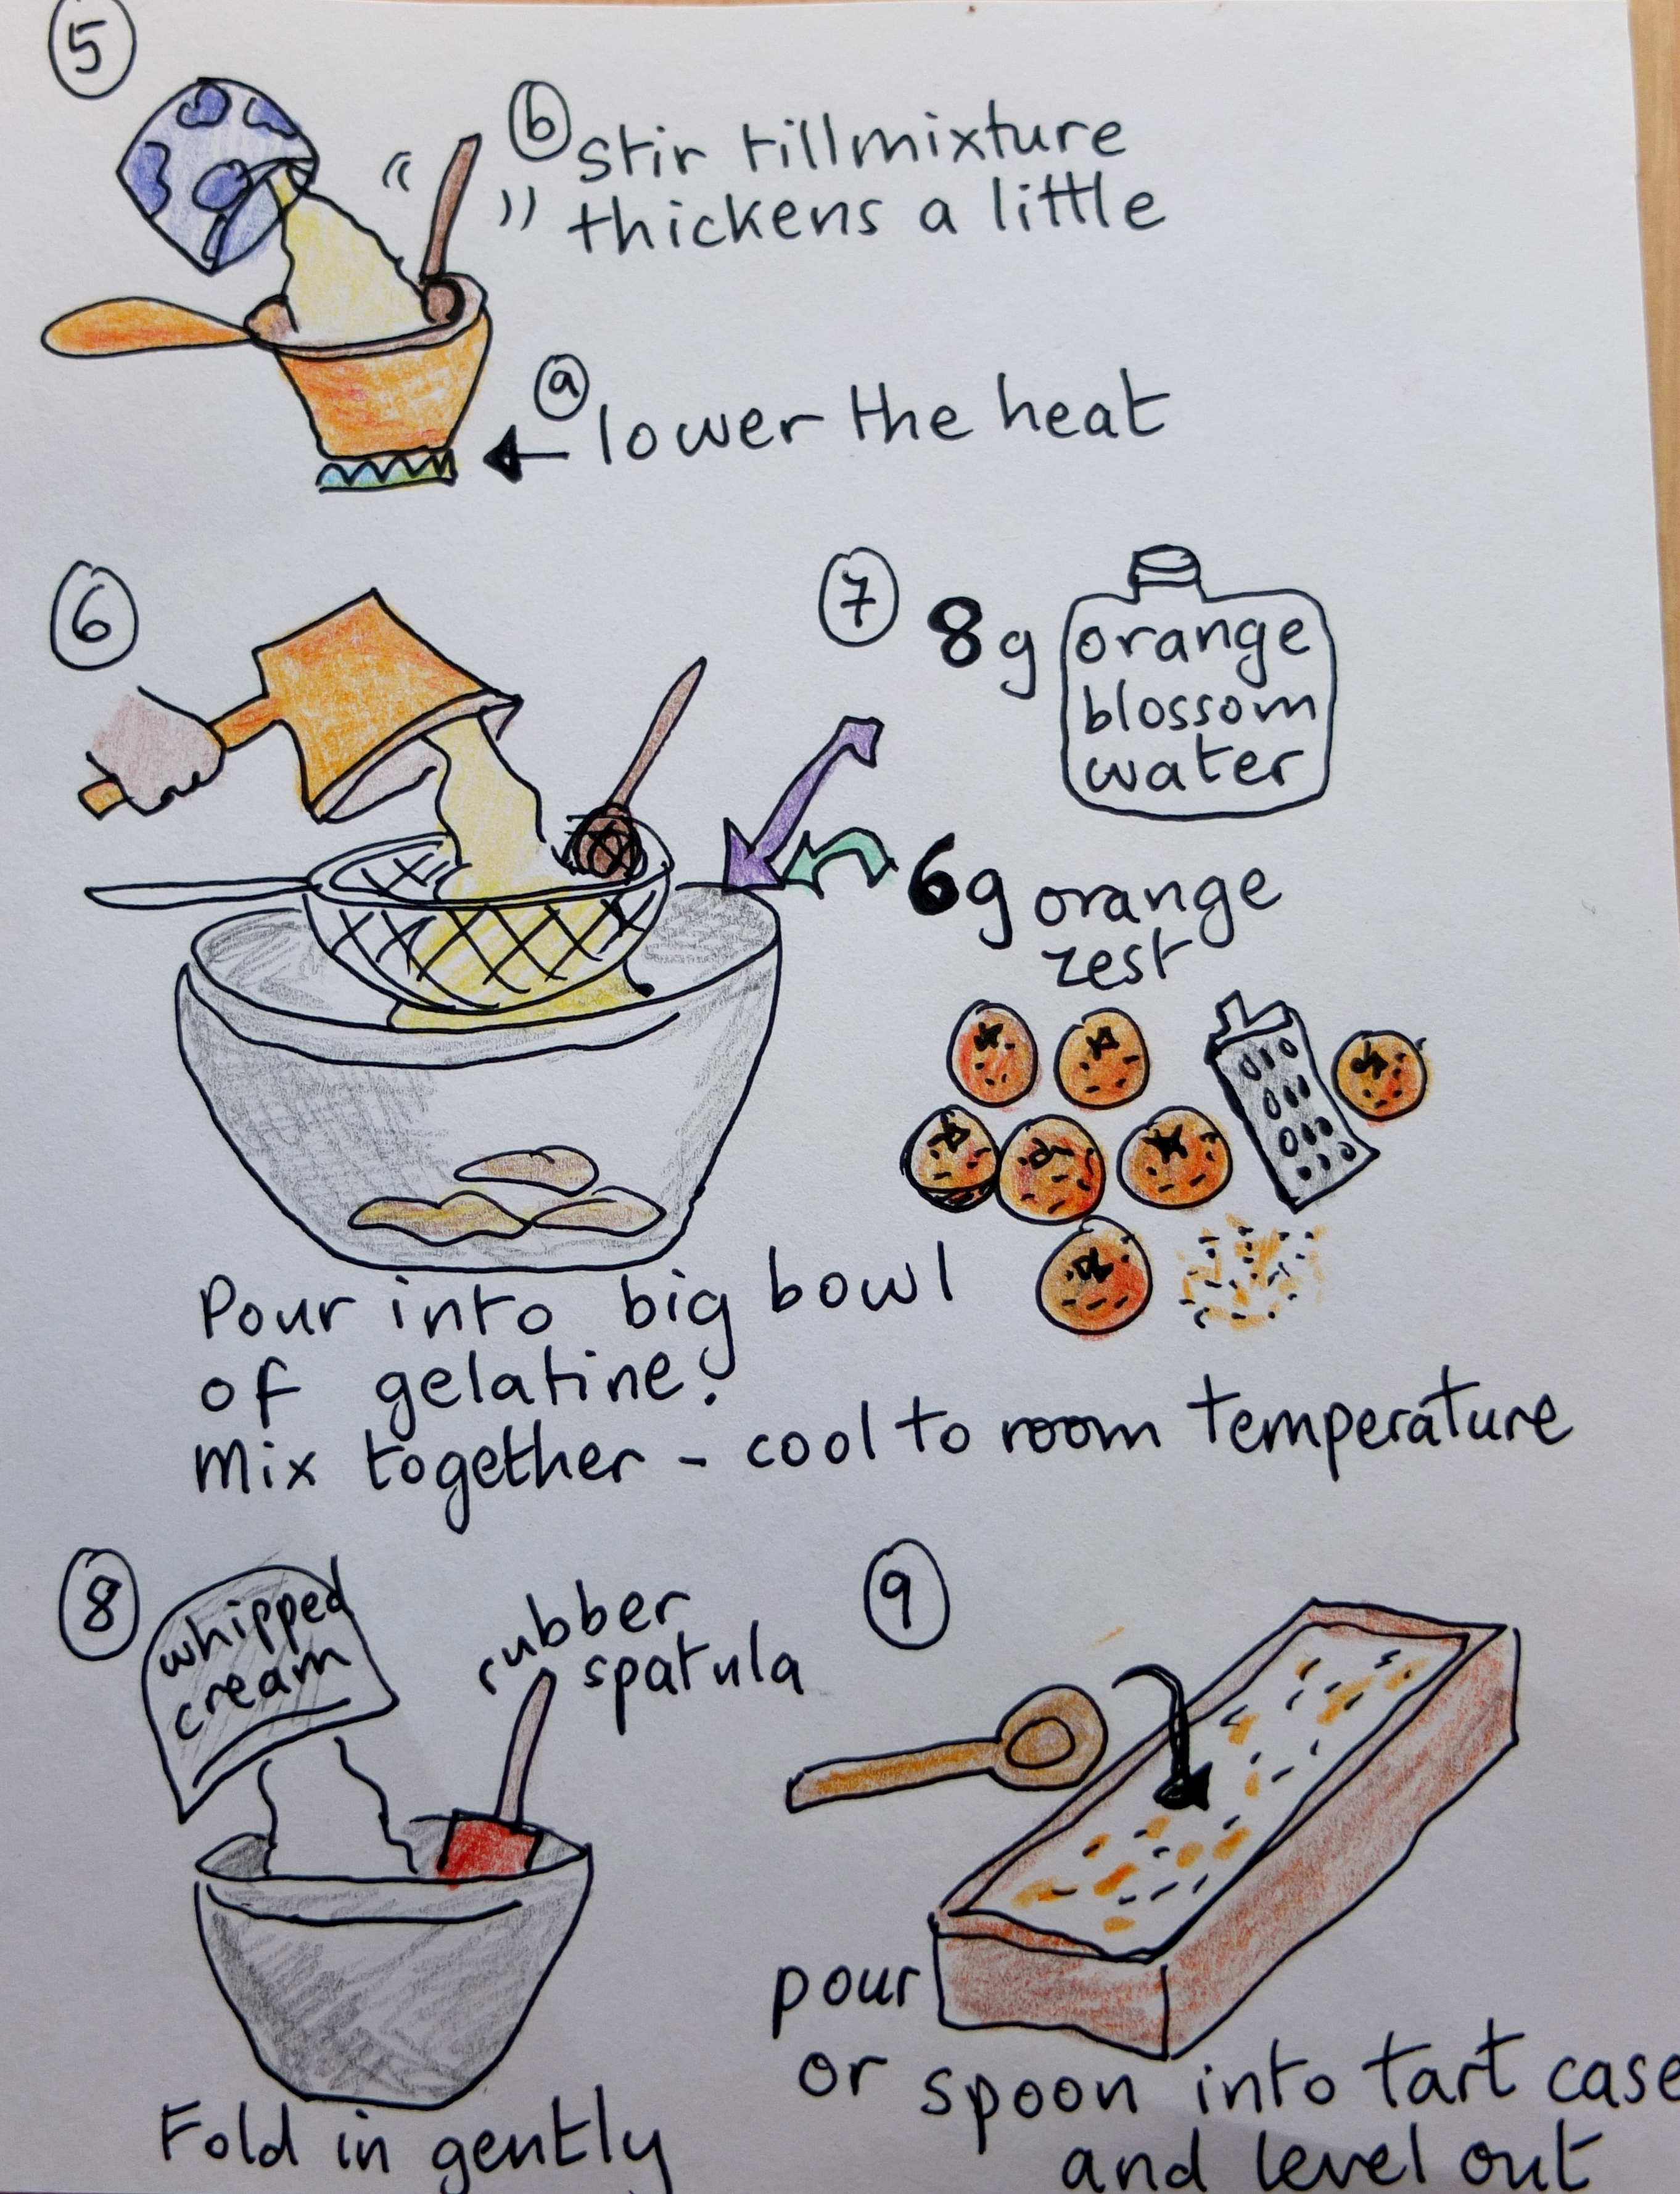 5
b stir till mixture
thickens a little
a lower the heat
6
7
8g orange
blossom
water
6g orange
zest
Pour into big bowl
of gelatine!
Mix together - cool to room temperature
8
whipped
cream
rubber
spatula
Fold in gently
9
pour
or spoon into tart case
and level out